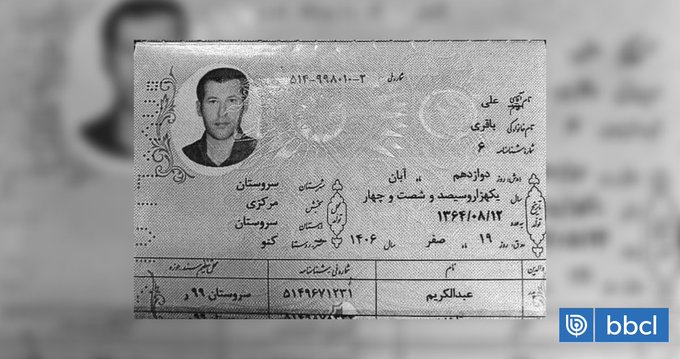 شماره ملی ۵۱۴-۹۹۸۰۱۰-۲
نام آقای علی
نام خانوادگی باقری
شماره شناسنامه ۶
روز دوازدهم ماه آبان
سال یکهزاروسیصد و شصت و چهار
۱۳۶۴/۰۸/۱۲
روز ۱۹ ماه صفر سال ۱۴۰۶
تاریخ تولد
شهرستان سروستان
بخش مرکزی
دهستان سروستان
روستا کنو
محل تولد
والدین نام شماره ملی / شناسنامه
عبدالکریم ۵۱۴۹۶۷۱۲۳۱ سروستان ۹۹ و
bbcl